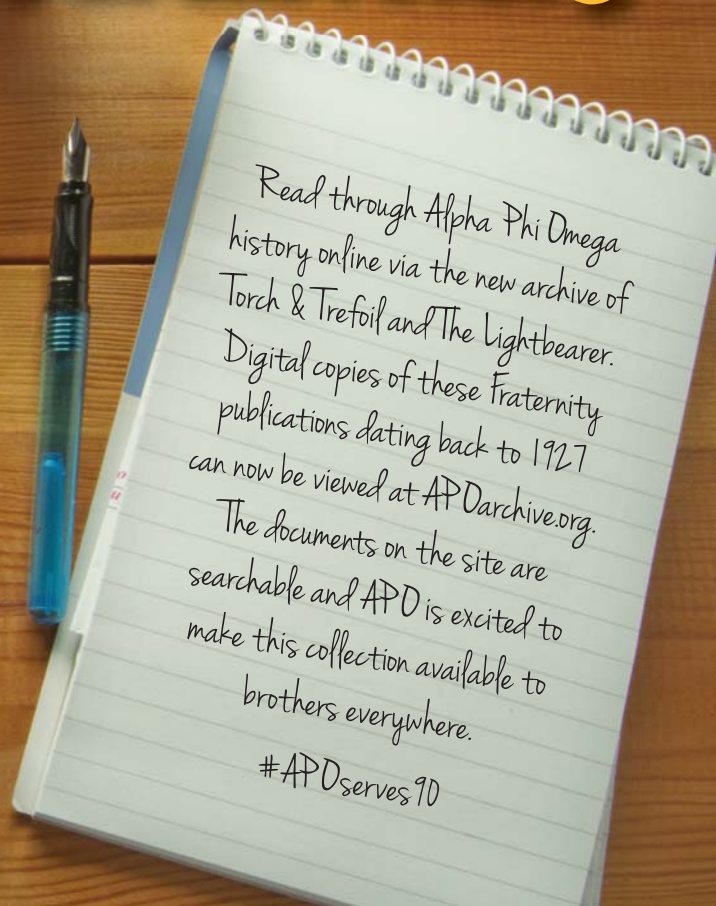 Read through Alpha Phi Omega
history online via the new archive of
Torch & Trefoil and The Lightbearer.
Digital copies of these Fraternity
publications dating back to 1927
can now be viewed at APOarchive.org.
The documents on the site are
searchable and APO is excited to
make this collection available to
brothers everywhere.
#APOserves90